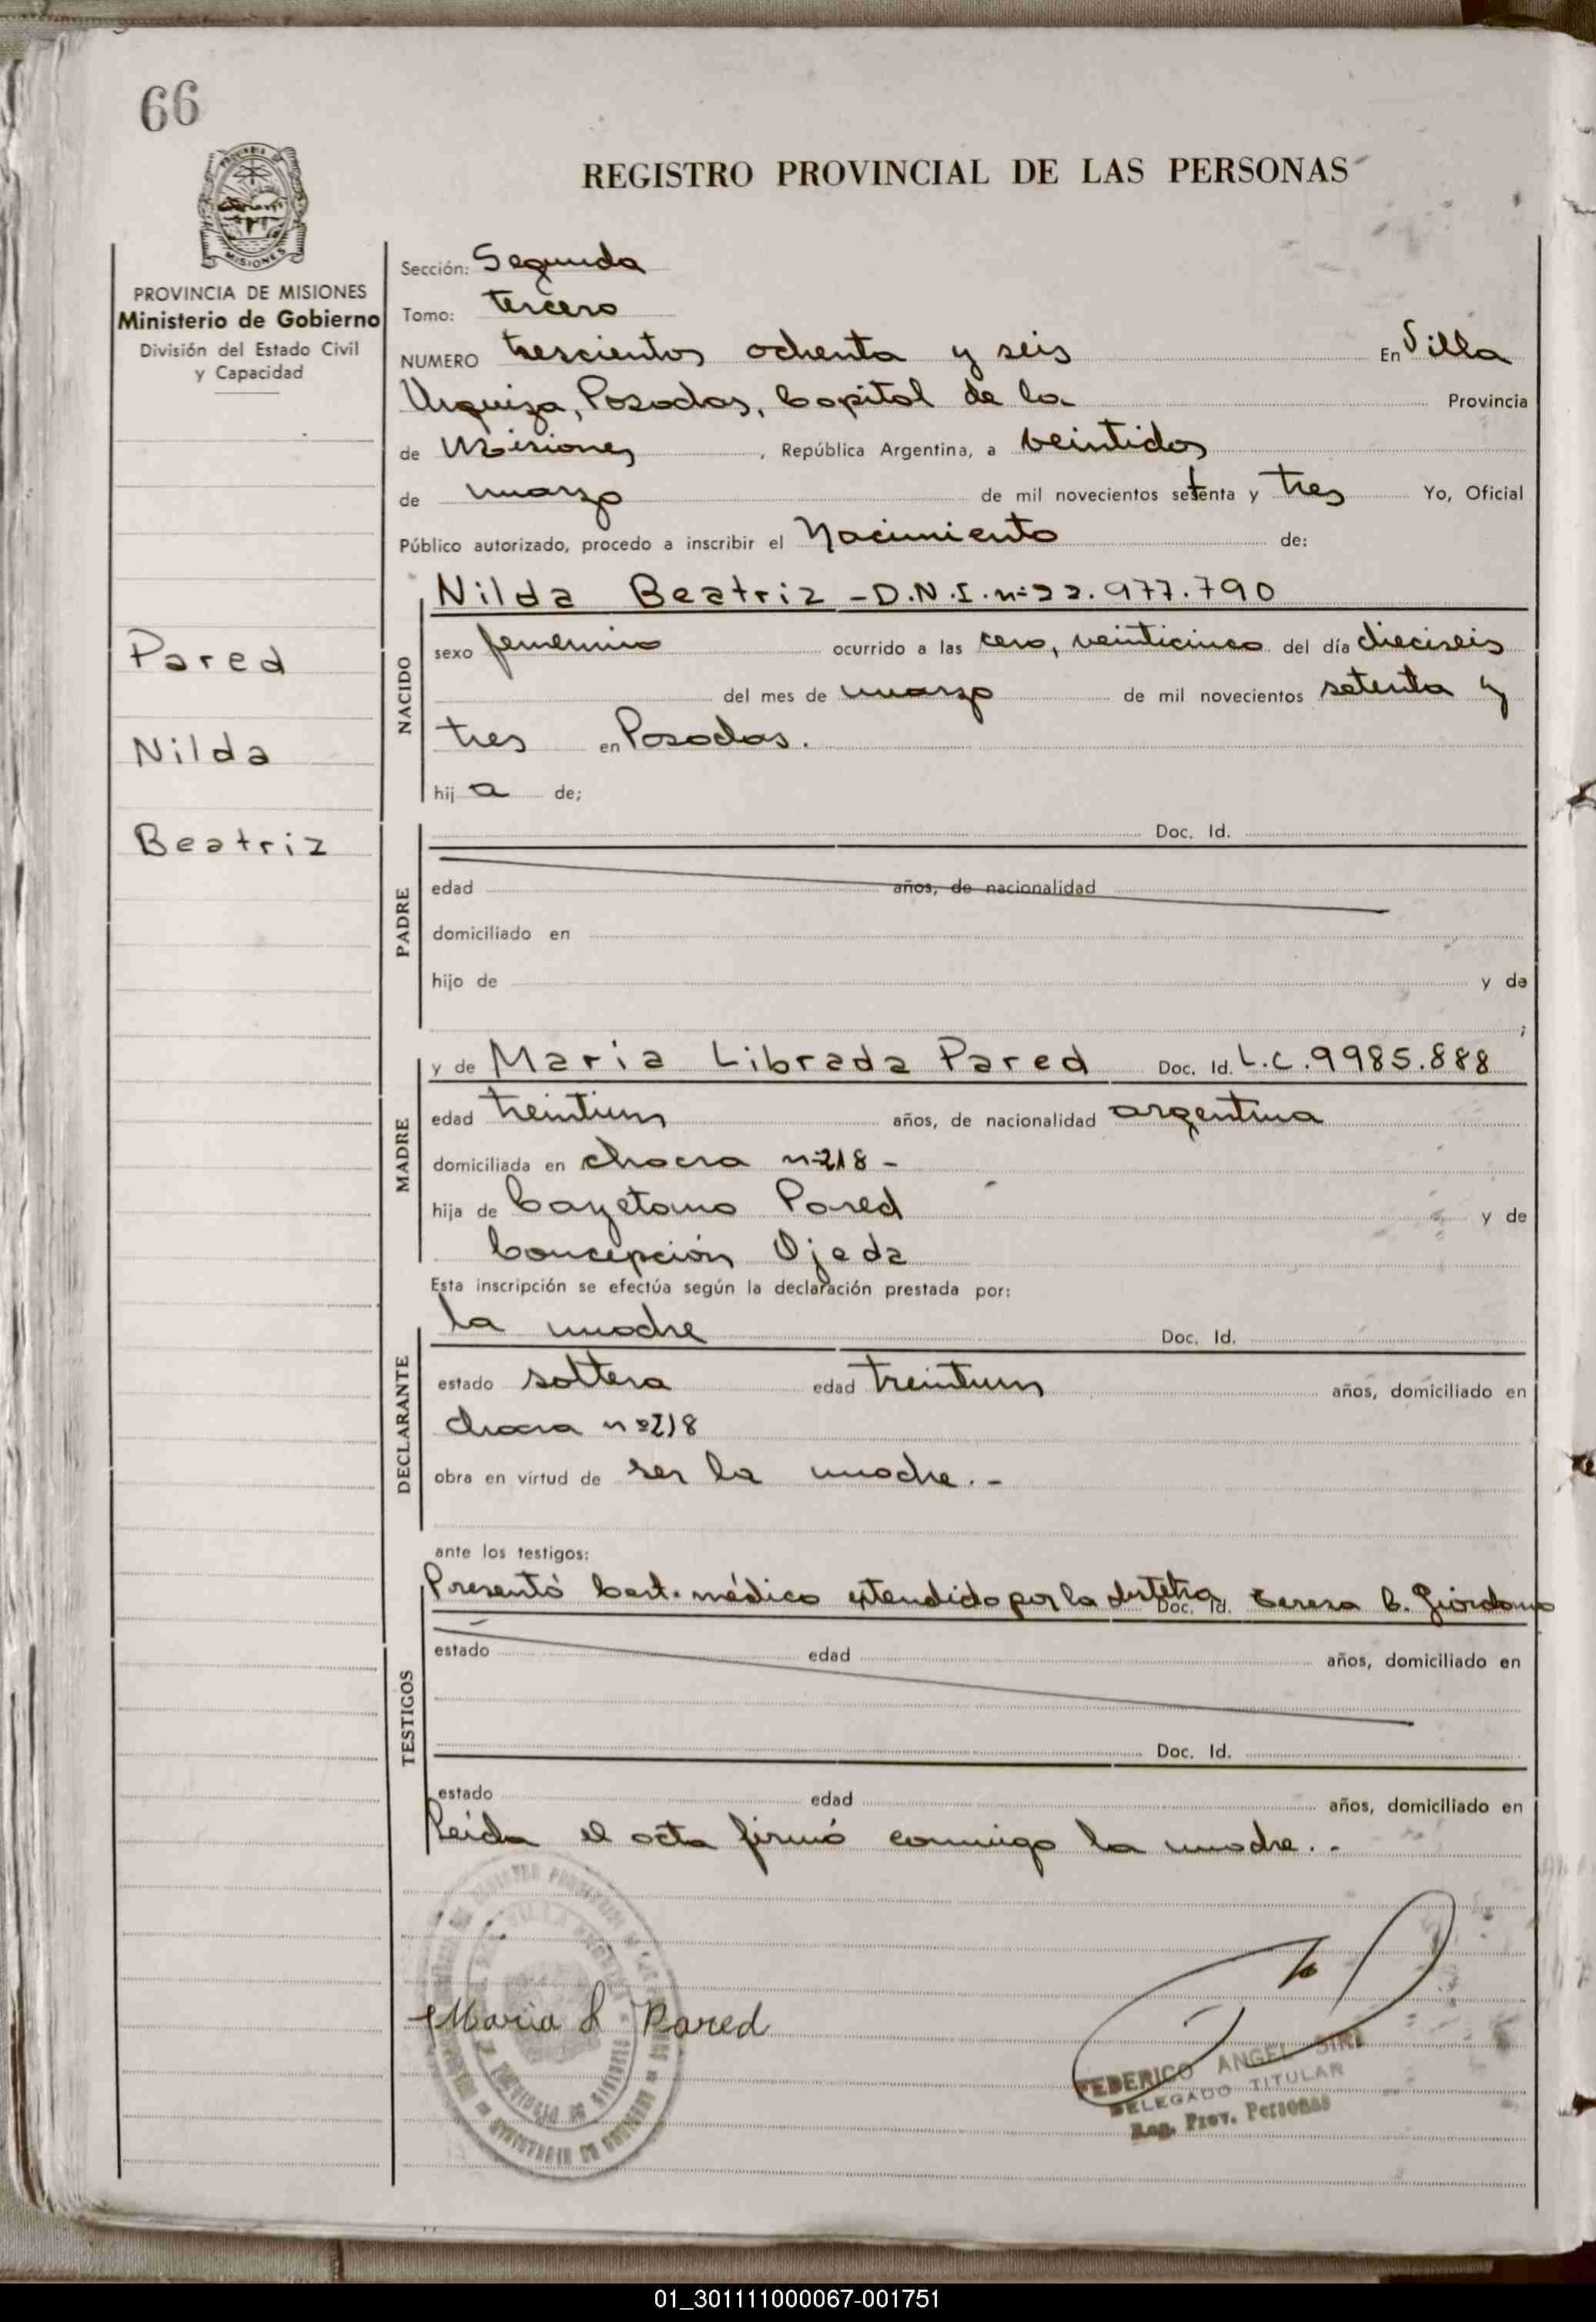 66
REGISTRO PROVINCIAL DE LAS PERSONAS
MISIONES
PROVINCIA DE MISIONES
Ministerio de Gobierno
División del Estado Civil
y Capacidad
Pared
Nilda
Beatriz
Sección: Segunda
Tomo: tercero
NUMERO trescientos ochenta y seis En Villa
Urquiza, Posadas, Capital de la Provincia
de Misiones, República Argentina, a veintidos
de marzo de mil novecientos setenta y tres Yo, Oficial
Público autorizado, procedo a inscribir el Nacimiento de:
NACIDO
Nilda Beatriz - D.N.I. nº 22.977.790
sexo femenino ocurrido a las cero, veinticinco del día dieciseis
del mes de marzo de mil novecientos setenta y
tres en Posadas.
hija de;
PADRE
Doc. Id.
edad años, de nacionalidad
domiciliado en
hijo de y de
;
MADRE
y de Maria Librada Pared Doc. Id. L.C. 9985.888
edad treintiun años, de nacionalidad argentina
domiciliada en chacra nº 218 -
hija de Cayetano Pared y de
Concepción Ojeda
Esta inscripción se efectúa según la declaración prestada por:
DECLARANTE
la madre Doc. Id.
estado soltera edad treintiun años, domiciliado en
chacra nº 218
obra en virtud de ser la madre. -
ante los testigos:
TESTIGOS
Presentó Cert. médico extendido por la obstetra Doc. Id. Teresa C. Giordano
estado edad años, domiciliado en
Doc. Id.
estado edad años, domiciliado en
Leída el acta firmó conmigo la madre. -
Maria L Pared
FEDERICO ANGEL SIRI
DELEGADO TITULAR
Reg. Prov. Personas
01_301111000067-001751